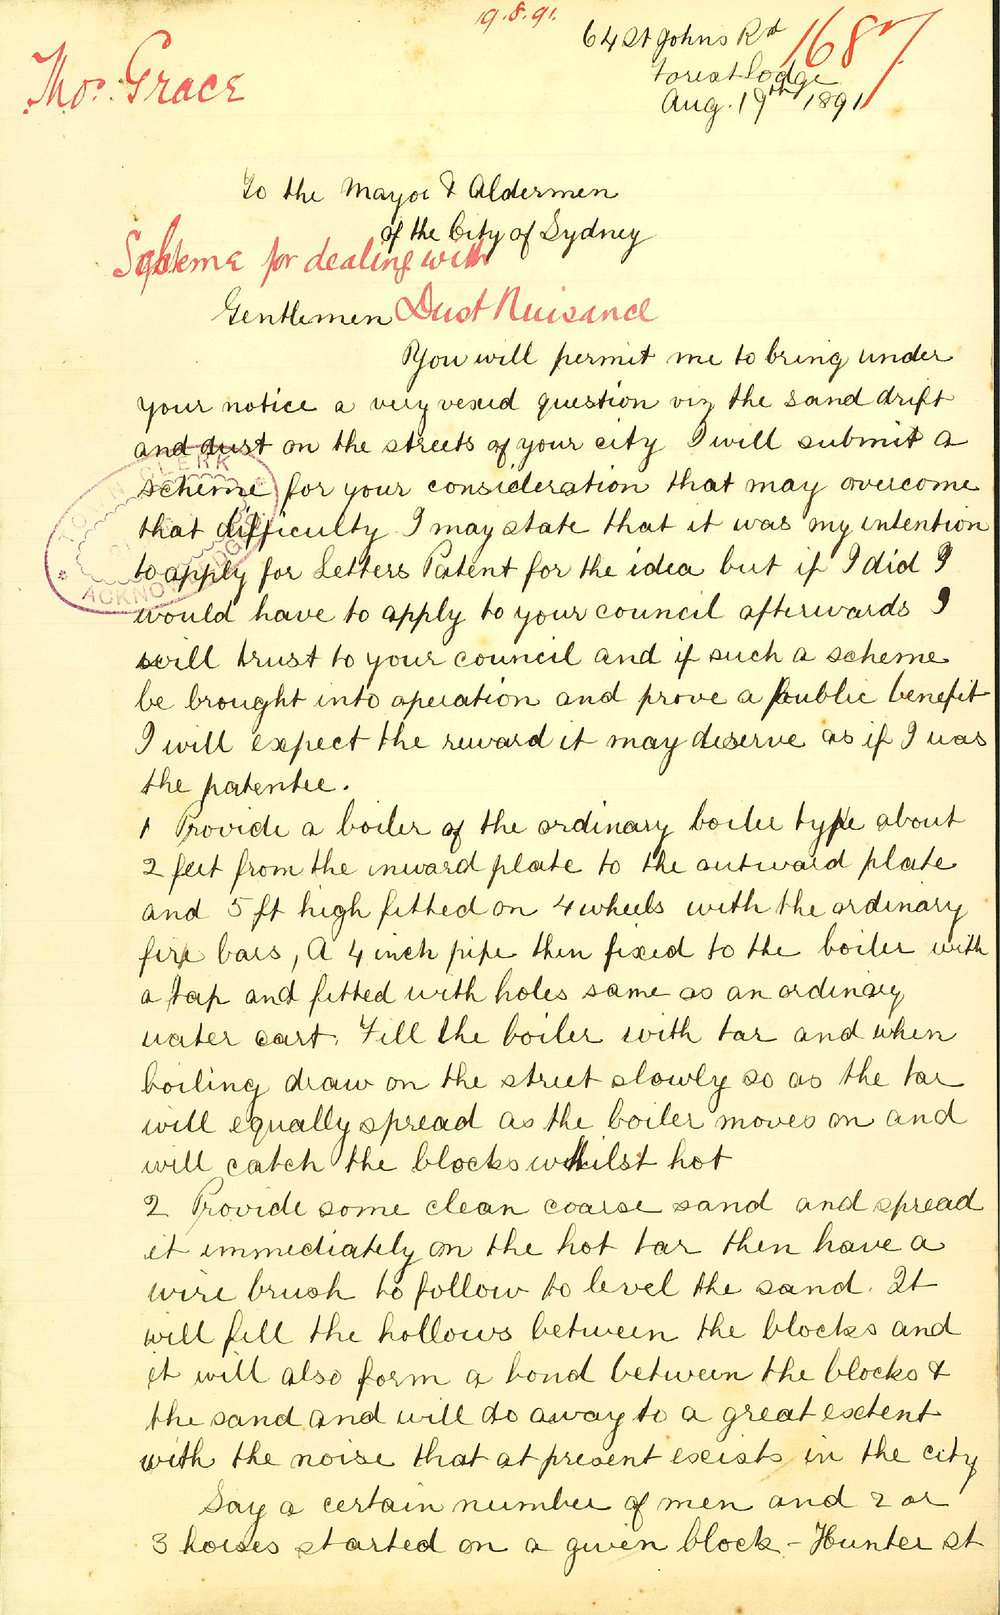 19.8.91.
64 St Johns Rd
1687
Forest Lodge
Thos. Grace
Aug. 19th 1891
To the Mayor & Aldermen
of the City of Sydney
Scheme for dealing with
Gentlemen Dust Nuisance
You will permit me to bring under
your notice a very vexed question viz the sand drift
and dust on the streets of your city I will submit a
scheme for your consideration that may overcome
that difficulty I may state that it was my intention
to apply for Letters Patent for the idea but if I did I
would have to apply to your council afterwards I
will trust to your council and if such a scheme
be brought into operation and prove a public benefit
I will expect the reward it may deserve as if I was
the patentee.
TOWN CLERK
ACKNOWLEDGED
1 Provide a boiler of the ordinary boiler type about
2 feet from the inward plate to the outward plate
and 5 ft high fitted on 4 wheels with the ordinary
fire bars, A 4 inch pipe then fixed to the boiler with
a tap and fitted with holes same as an ordinary
water cart. Fill the boiler with tar and when
boiling draw on the street slowly so as the tar
will equally spread as the boiler moves on and
will catch the blocks whilst hot
2 Provide some clean coarse sand and spread
it immediately on the hot tar then have a
wire brush to follow to level the sand. It
will fill the hollows between the blocks and
it will also form a bond between the blocks &
the sand and will do away to a great extent
with the noise that at present exists in the city
Say a certain number of men and 2 or
3 horses started on a given block - Hunter st